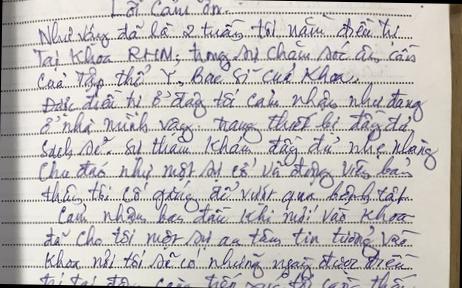 Lời Cảm ơn.
Như vậy đã là 2 tuần tôi nằm điều trị
Tại Khoa RHM, trong sự chăm sóc ân cần
của Tập thể Y, Bác Sĩ của Khoa.
Được điều trị ở đây tôi cảm nhận như đang
ở nhà mình vậy, trang thiết bị đầy đủ
sạch sẽ sự thăm khám đầy đủ nhẹ nhàng
chu đáo như một sự cổ vũ động viên bản
thân tôi cố gắng để vượt qua bệnh tật.
Cảm nhận ban đầu khi mới vào Khoa
đã cho tôi một sự an tâm tin tưởng vào
Khoa nơi tôi sẽ có những ngày được điều
trị tại đây